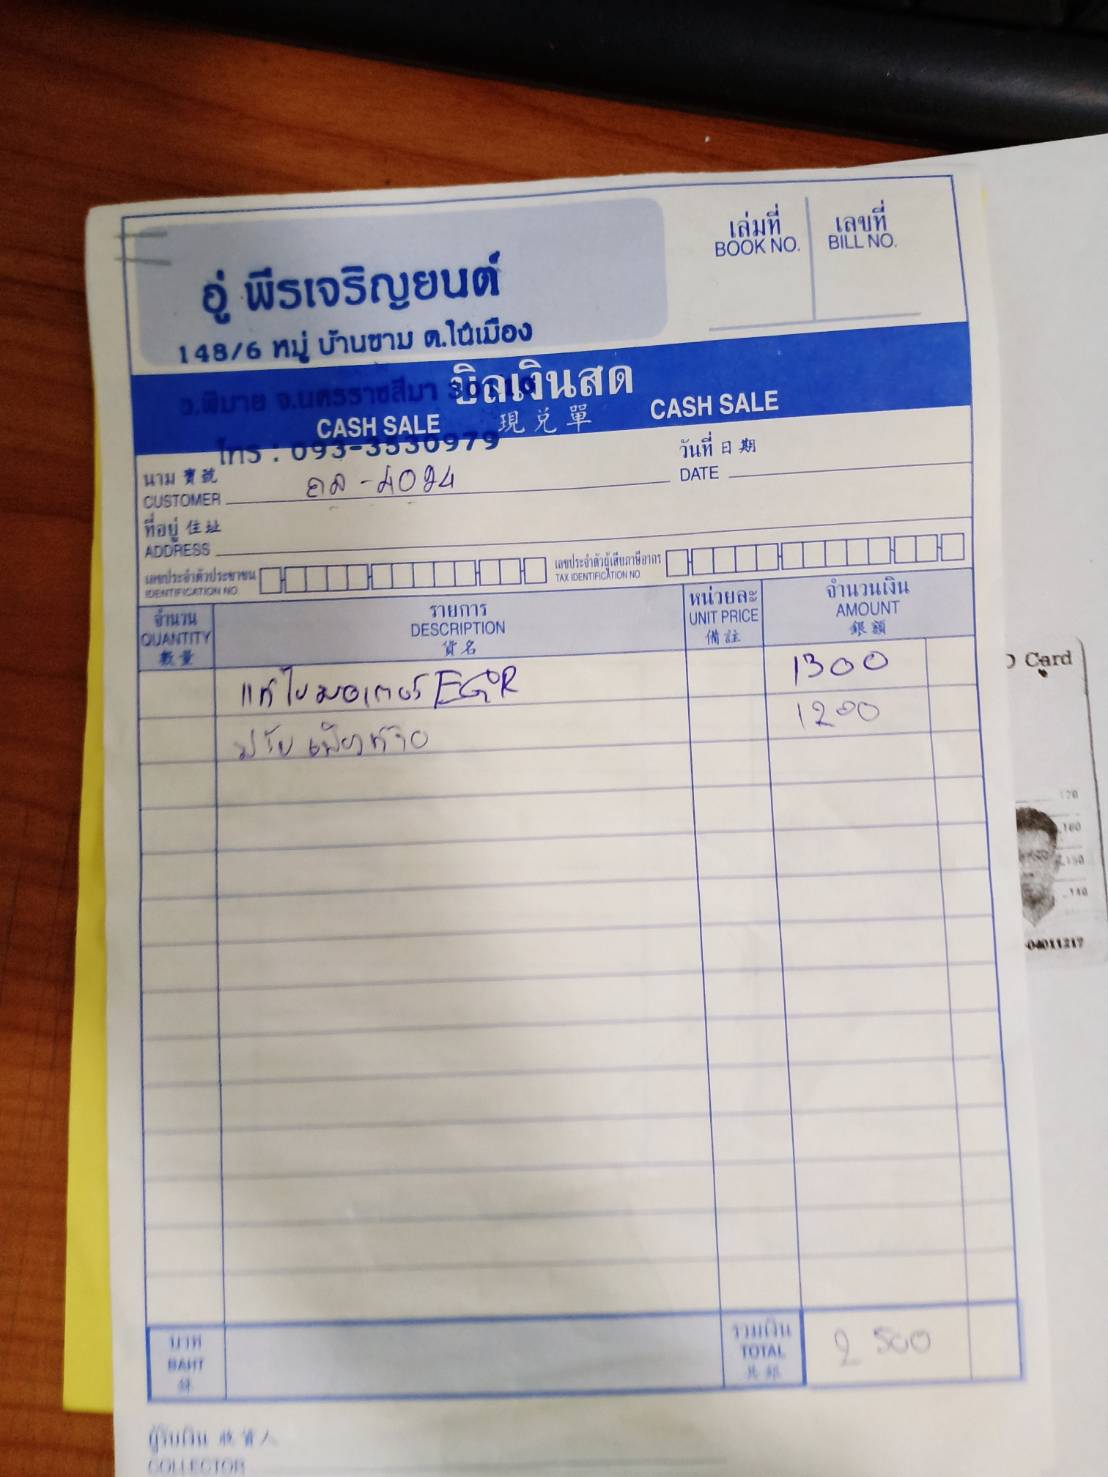 เล่มที่ เลขที่
BOOK NO. BILL NO.
อู่ พีรเจริญยนต์
148/6 หมู่ บ้านขาม ต.ในเมือง
บิลเงินสด
อ.พิมาย จ.นครราชสีมา 30110
CASH SALE 現兑單 CASH SALE
โทร : 093-3530979
นาม 寶號 วันที่ 日期
CUSTOMER 4094 DATE
ที่อยู่ 住址
ADDRESS
เลขประจำตัวประชาชน เลขประจำตัวผู้เสียภาษีอากร
IDENTIFICATION NO. TAX IDENTIFICATION NO.
จำนวน รายการ หน่วยละ จำนวนเงิน
QUANTITY DESCRIPTION UNIT PRICE AMOUNT
數量 貨名 備註 銀額
แก้ไขมอเตอร์ EGR 1300
1200
บาท รวมเงิน 2500
BAHT TOTAL
ผู้รับเงิน
COLLECTOR
Card
170
160
150
140
04011217